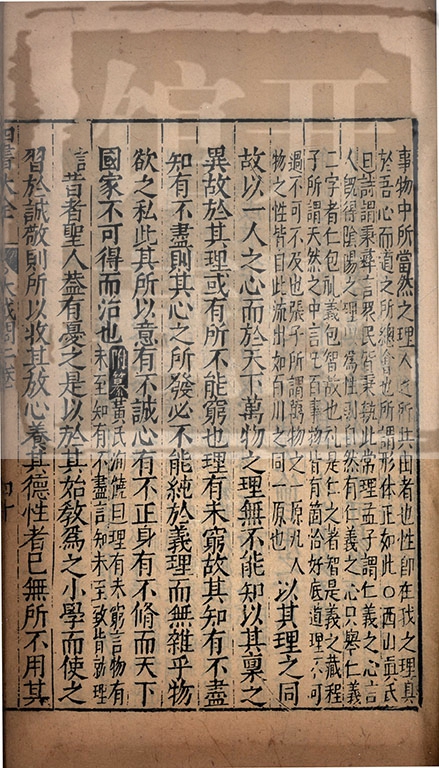 事物中所當然之理人之所共由者也性即在我之理具
於吾心而道之所總會也所謂形體正如此○西山真氏
曰詩謂秉彝言眾民皆秉執此常理孟子謂仁義之心言
人既得陰陽之理以為性則自然有仁義之心只舉仁義
二字者仁包禮義包智故也禮是仁之著智是義之藏程
子所謂天然之中言凡百事物皆有箇恰好底道理不可
過不可不及也張子所謂萬物之一原凡人
物之性皆自此流出如百川之同一原也
以其理之同
故以一人之心而於天下萬物之理無不能知以其稟之
異故於其理或有所不能窮也理有未窮故其知有不盡
知有不盡則其心之所發必不能純於義理而無雜乎物
欲之私此其所以意有不誠心有不正身有不脩而天下
國家不可得而治也
附纂
黃氏洵饒曰理有未窮言物有
未至知有不盡言知未至致皆訪理
言
昔者聖人蓋有憂之是以於其始教為之小學而使之
習於誠敬則所以收其放心養其德性者已無所不用其
四書大全
大或問二卷
四十